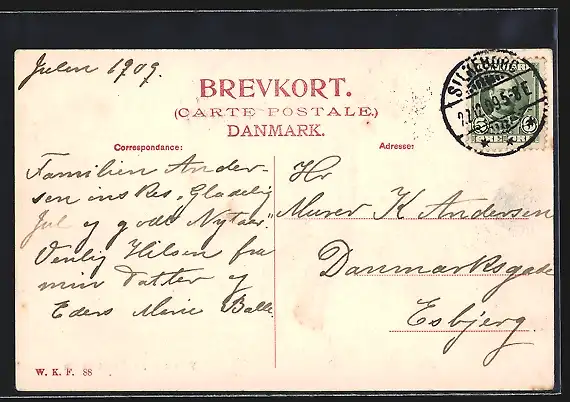 Julen 1909.
BREVKORT.
(CARTE POSTALE.)
DANMARK.
SILKEBORG
22.12.09.5-8 E
Correspondance:
Adresse:
Familien Ander-
sen ønskes „Glædelig
Jul og godt Nytaar."
Venlig Hilsen fra
min Datter og
Eders Marie Balle.
Hr
Murer K Andersen
Danmarksgade
Esbjerg.
W. K. F. 88